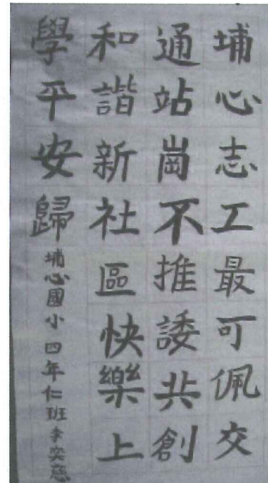 埔心志工最可佩交
通站崗不推諉共創
和諧新社區快樂上
學平安歸
埔心國小四年仁班李奕慈